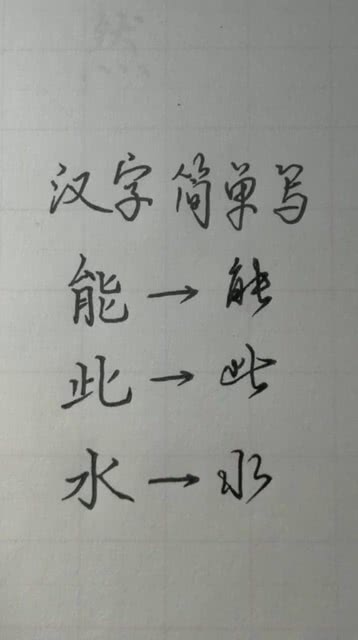 汉字简单写
能→能
此→此
水→水